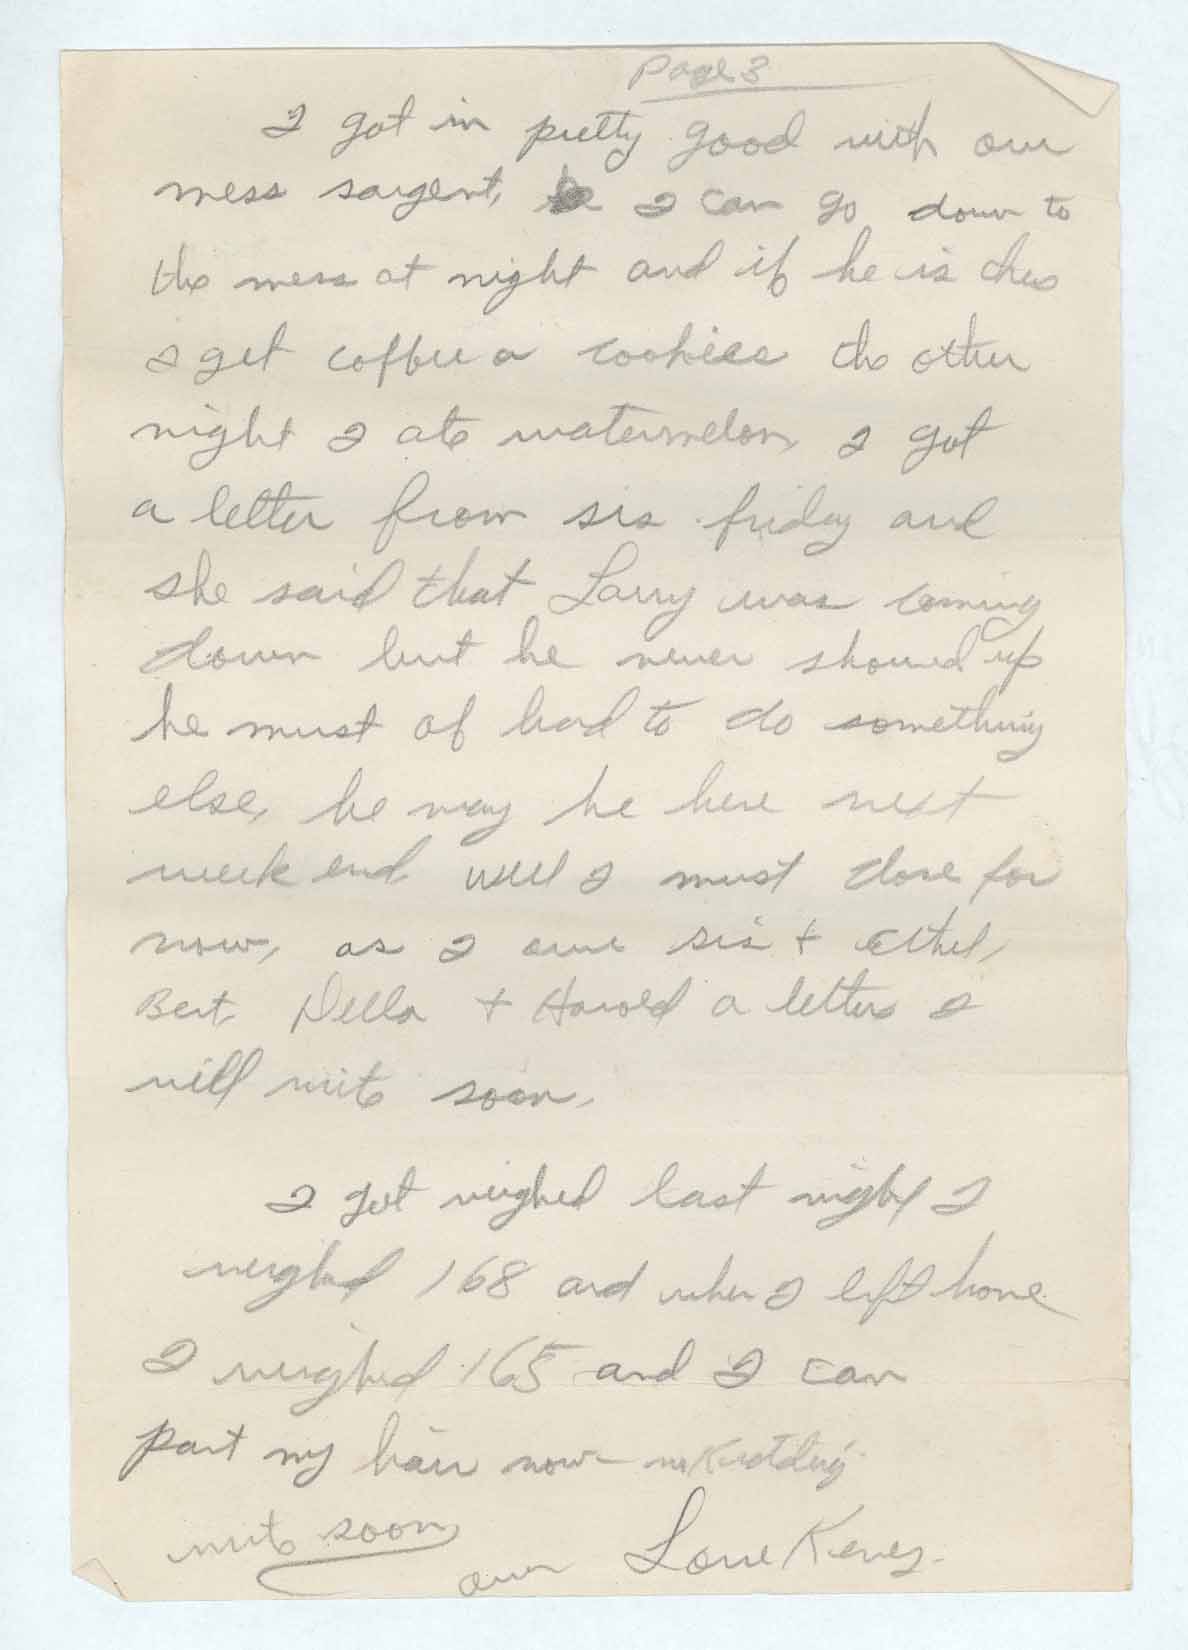 Page 3
I got in pretty good with our
mess sargent, I can go down to
the mess at night and if he is ther
I get coffee a cookies the other
night I ate watermelon, I got
a letter from sis friday and
she said that Larry was coming
down but he never showed up
he must of had to do something
else, he may be here next
week end well I must close for
now, as I owe sis + Ethel,
Bert, Della + Harold a letter I
will write soon.
I got weighed last night I
weighed 168 and when I left home
I weighed 165 and I can
part my hair now - no Kidding
write soon
over Love Kenny.